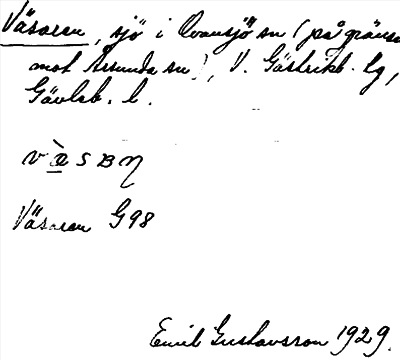 Väsaren, sjö i Ovansjö sn (på gränsen
mot Årsunda sn), V. Gästrikl. tg,
Gävleb. l.
v æ̀ s ʙ η
Väsaren G98
Emil Gustavsson 1929.